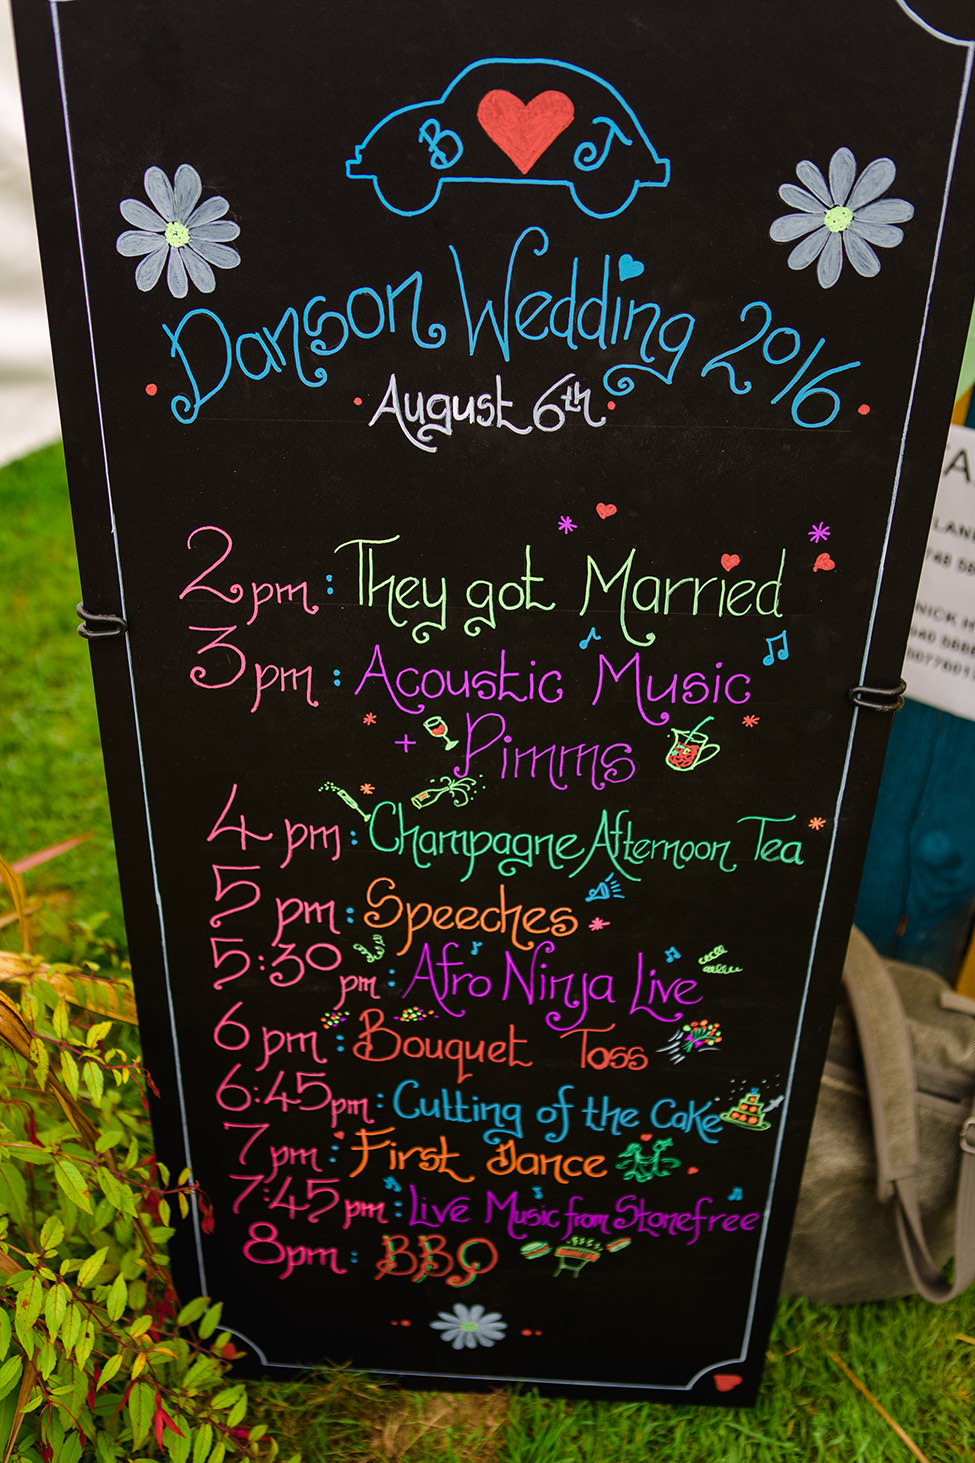 B J
Danson Wedding 2016
August 6th
2pm: They got Married
3pm: Acoustic Music
+ Pimms
4pm: Champagne Afternoon Tea
5pm: Speeches
5:30pm: Afro Ninja Live
6pm: Bouquet Toss
6:45pm: Cutting of the Cake
7pm: First Dance
7:45pm: Live Music from Stonefree
8pm: BBQ